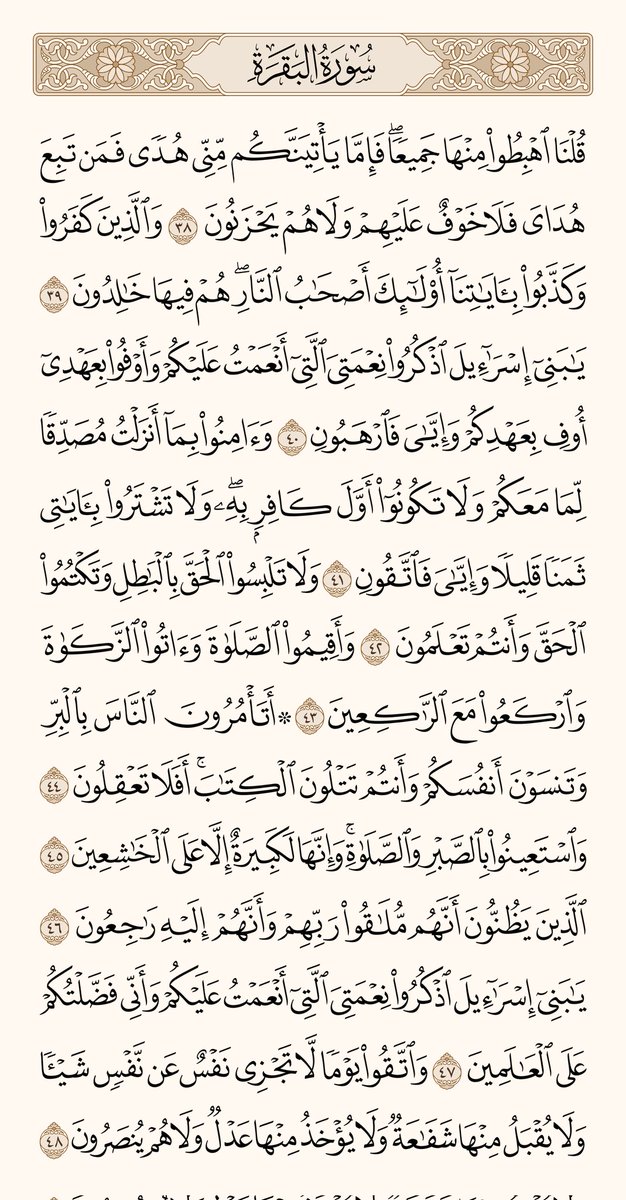 سُورَةُ الْبَقَرَةِ
قُلْنَا ٱهْبِطُوا۟ مِنْهَا جَمِيعًاۖ فَإِمَّا يَأْتِيَنَّكُم مِّنِّى هُدًى فَمَن تَبِعَ
هُدَاىَ فَلَا خَوْفٌ عَلَيْهِمْ وَلَا هُمْ يَحْزَنُونَ ٣٨ وَٱلَّذِينَ كَفَرُوا۟
وَكَذَّبُوا۟ بِـَٔايَـٰتِنَآ أُو۟لَـٰٓئِكَ أَصْحَـٰبُ ٱلنَّارِۖ هُمْ فِيهَا خَـٰلِدُونَ ٣٩
يَـٰبَنِىٓ إِسْرَٰٓءِيلَ ٱذْكُرُوا۟ نِعْمَتِىَ ٱلَّتِىٓ أَنْعَمْتُ عَلَيْكُمْ وَأَوْفُوا۟ بِعَهْدِىٓ
أُوفِ بِعَهْدِكُمْ وَإِيَّـٰىَ فَٱرْهَبُونِ ٤٠ وَءَامِنُوا۟ بِمَآ أَنزَلْتُ مُصَدِّقًا
لِّمَا مَعَكُمْ وَلَا تَكُونُوٓا۟ أَوَّلَ كَافِرٍۭ بِهِۦۖ وَلَا تَشْتَرُوا۟ بِـَٔايَـٰتِى
ثَمَنًا قَلِيلًا وَإِيَّـٰىَ فَٱتَّقُونِ ٤١ وَلَا تَلْبِسُوا۟ ٱلْحَقَّ بِٱلْبَـٰطِلِ وَتَكْتُمُوا۟
ٱلْحَقَّ وَأَنتُمْ تَعْلَمُونَ ٤٢ وَأَقِيمُوا۟ ٱلصَّلَوٰةَ وَءَاتُوا۟ ٱلزَّكَوٰةَ
وَٱرْكَعُوا۟ مَعَ ٱلرَّٰكِعِينَ ٤٣ * أَتَأْمُرُونَ ٱلنَّاسَ بِٱلْبِرِّ
وَتَنسَوْنَ أَنفُسَكُمْ وَأَنتُمْ تَتْلُونَ ٱلْكِتَـٰبَۚ أَفَلَا تَعْقِلُونَ ٤٤
وَٱسْتَعِينُوا۟ بِٱلصَّبْرِ وَٱلصَّلَوٰةِۚ وَإِنَّهَا لَكَبِيرَةٌ إِلَّا عَلَى ٱلْخَـٰشِعِينَ ٤٥
ٱلَّذِينَ يَظُنُّونَ أَنَّهُم مُّلَـٰقُوا۟ رَبِّهِمْ وَأَنَّهُمْ إِلَيْهِ رَٰجِعُونَ ٤٦
يَـٰبَنِىٓ إِسْرَٰٓءِيلَ ٱذْكُرُوا۟ نِعْمَتِىَ ٱلَّتِىٓ أَنْعَمْتُ عَلَيْكُمْ وَأَنِّى فَضَّلْتُكُمْ
عَلَى ٱلْعَـٰلَمِينَ ٤٧ وَٱتَّقُوا۟ يَوْمًا لَّا تَجْزِى نَفْسٌ عَن نَّفْسٍ شَيْـًٔا
وَلَا يُقْبَلُ مِنْهَا شَفَـٰعَةٌ وَلَا يُؤْخَذُ مِنْهَا عَدْلٌ وَلَا هُمْ يُنصَرُونَ ٤٨